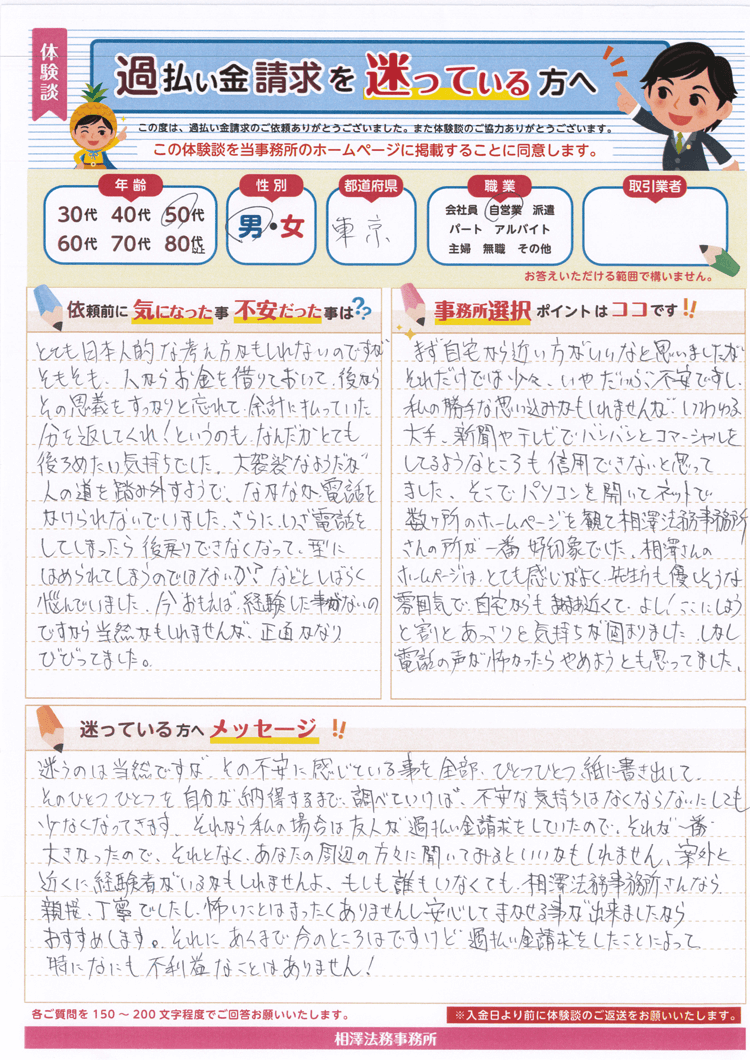 体験談
過払い金請求を迷っている方へ
この度は、過払い金請求のご依頼ありがとうございました。また体験談のご協力ありがとうございます。
この体験談を当事務所のホームページに掲載することに同意します。
年齢
30代 40代 50代
60代 70代 80代以上
性別
男・女
都道府県
東京
職業
会社員 自営業 派遣
パート アルバイト
主婦 無職 その他
取引業者
お答えいただける範囲で構いません。
依頼前に気になった事不安だった事は??
とても日本人的な考え方かもしれないのですが
そもそも、人からお金を借りておいて、後から
その恩義をすっかりと忘れて、余計に払っていた
分を返してくれ!というのも、なんだかとても
後ろめたい気持ちでした。大袈裟なようだが
人の道を踏み外すようで、なかなか電話を
かけられないでいました。さらに、いざ電話を
してしまったら後戻りできなくなって、型に
はめられてしまうのではないか?などとしばらく
悩んでいました。今おもえば、経験した事がないの
ですから当然かもしれませんが、正直かなり
びびってました。
事務所選択ポイントはココです!!
まず自宅から近い方がいいなと思いましたが
それだけでは少々、いやだいぶ不安ですし、
私の勝手な思い込みかもしれませんが、いわゆる
大手、新聞やテレビでバンバンとコマーシャルを
してるようなところも信用できないと思って
ました。そこでパソコンを開いてネットで
数ヶ所のホームページを観て相澤法務事務所
さんの所が一番好印象でした。相澤さんの
ホームページは、とても感じがよく、先生方も優しそうな
雰囲気で、自宅からもまあまあ近くて、よし!ここにしよう
と割とあっさりと気持ちが固まりました。しかし
電話の声が怖かったらやめようとも思ってました。
迷っている方へメッセージ!!
迷うのは当然ですが、その不安に感じている事を全部、ひとつひとつ紙に書き出して
そのひとつひとつを自分が納得するまで、調べていけば、不安な気持ちはなくならないにしても
少なくなってきます。それなら私の場合は友人が過払い金請求をしていたので、それが一番
大きかったので、それとなく、あなたの周辺の方々に聞いてみるといいかもしれません、案外と
近くに経験者がいるかもしれませんよ、もしも誰もいなくても、相澤法務事務所さんなら
親切、丁寧でしたし、怖いことはまったくありませんし安心してまかせる事が出来ましたから
おすすめします。それに、あくまで今のところはですけど過払い金請求をしたことによって
特になにも不利益なことはありません!
各ご質問を150～200文字程度でご回答お願いいたします。
※入金日より前に体験談のご返送をお願いいたします。
相澤法務事務所